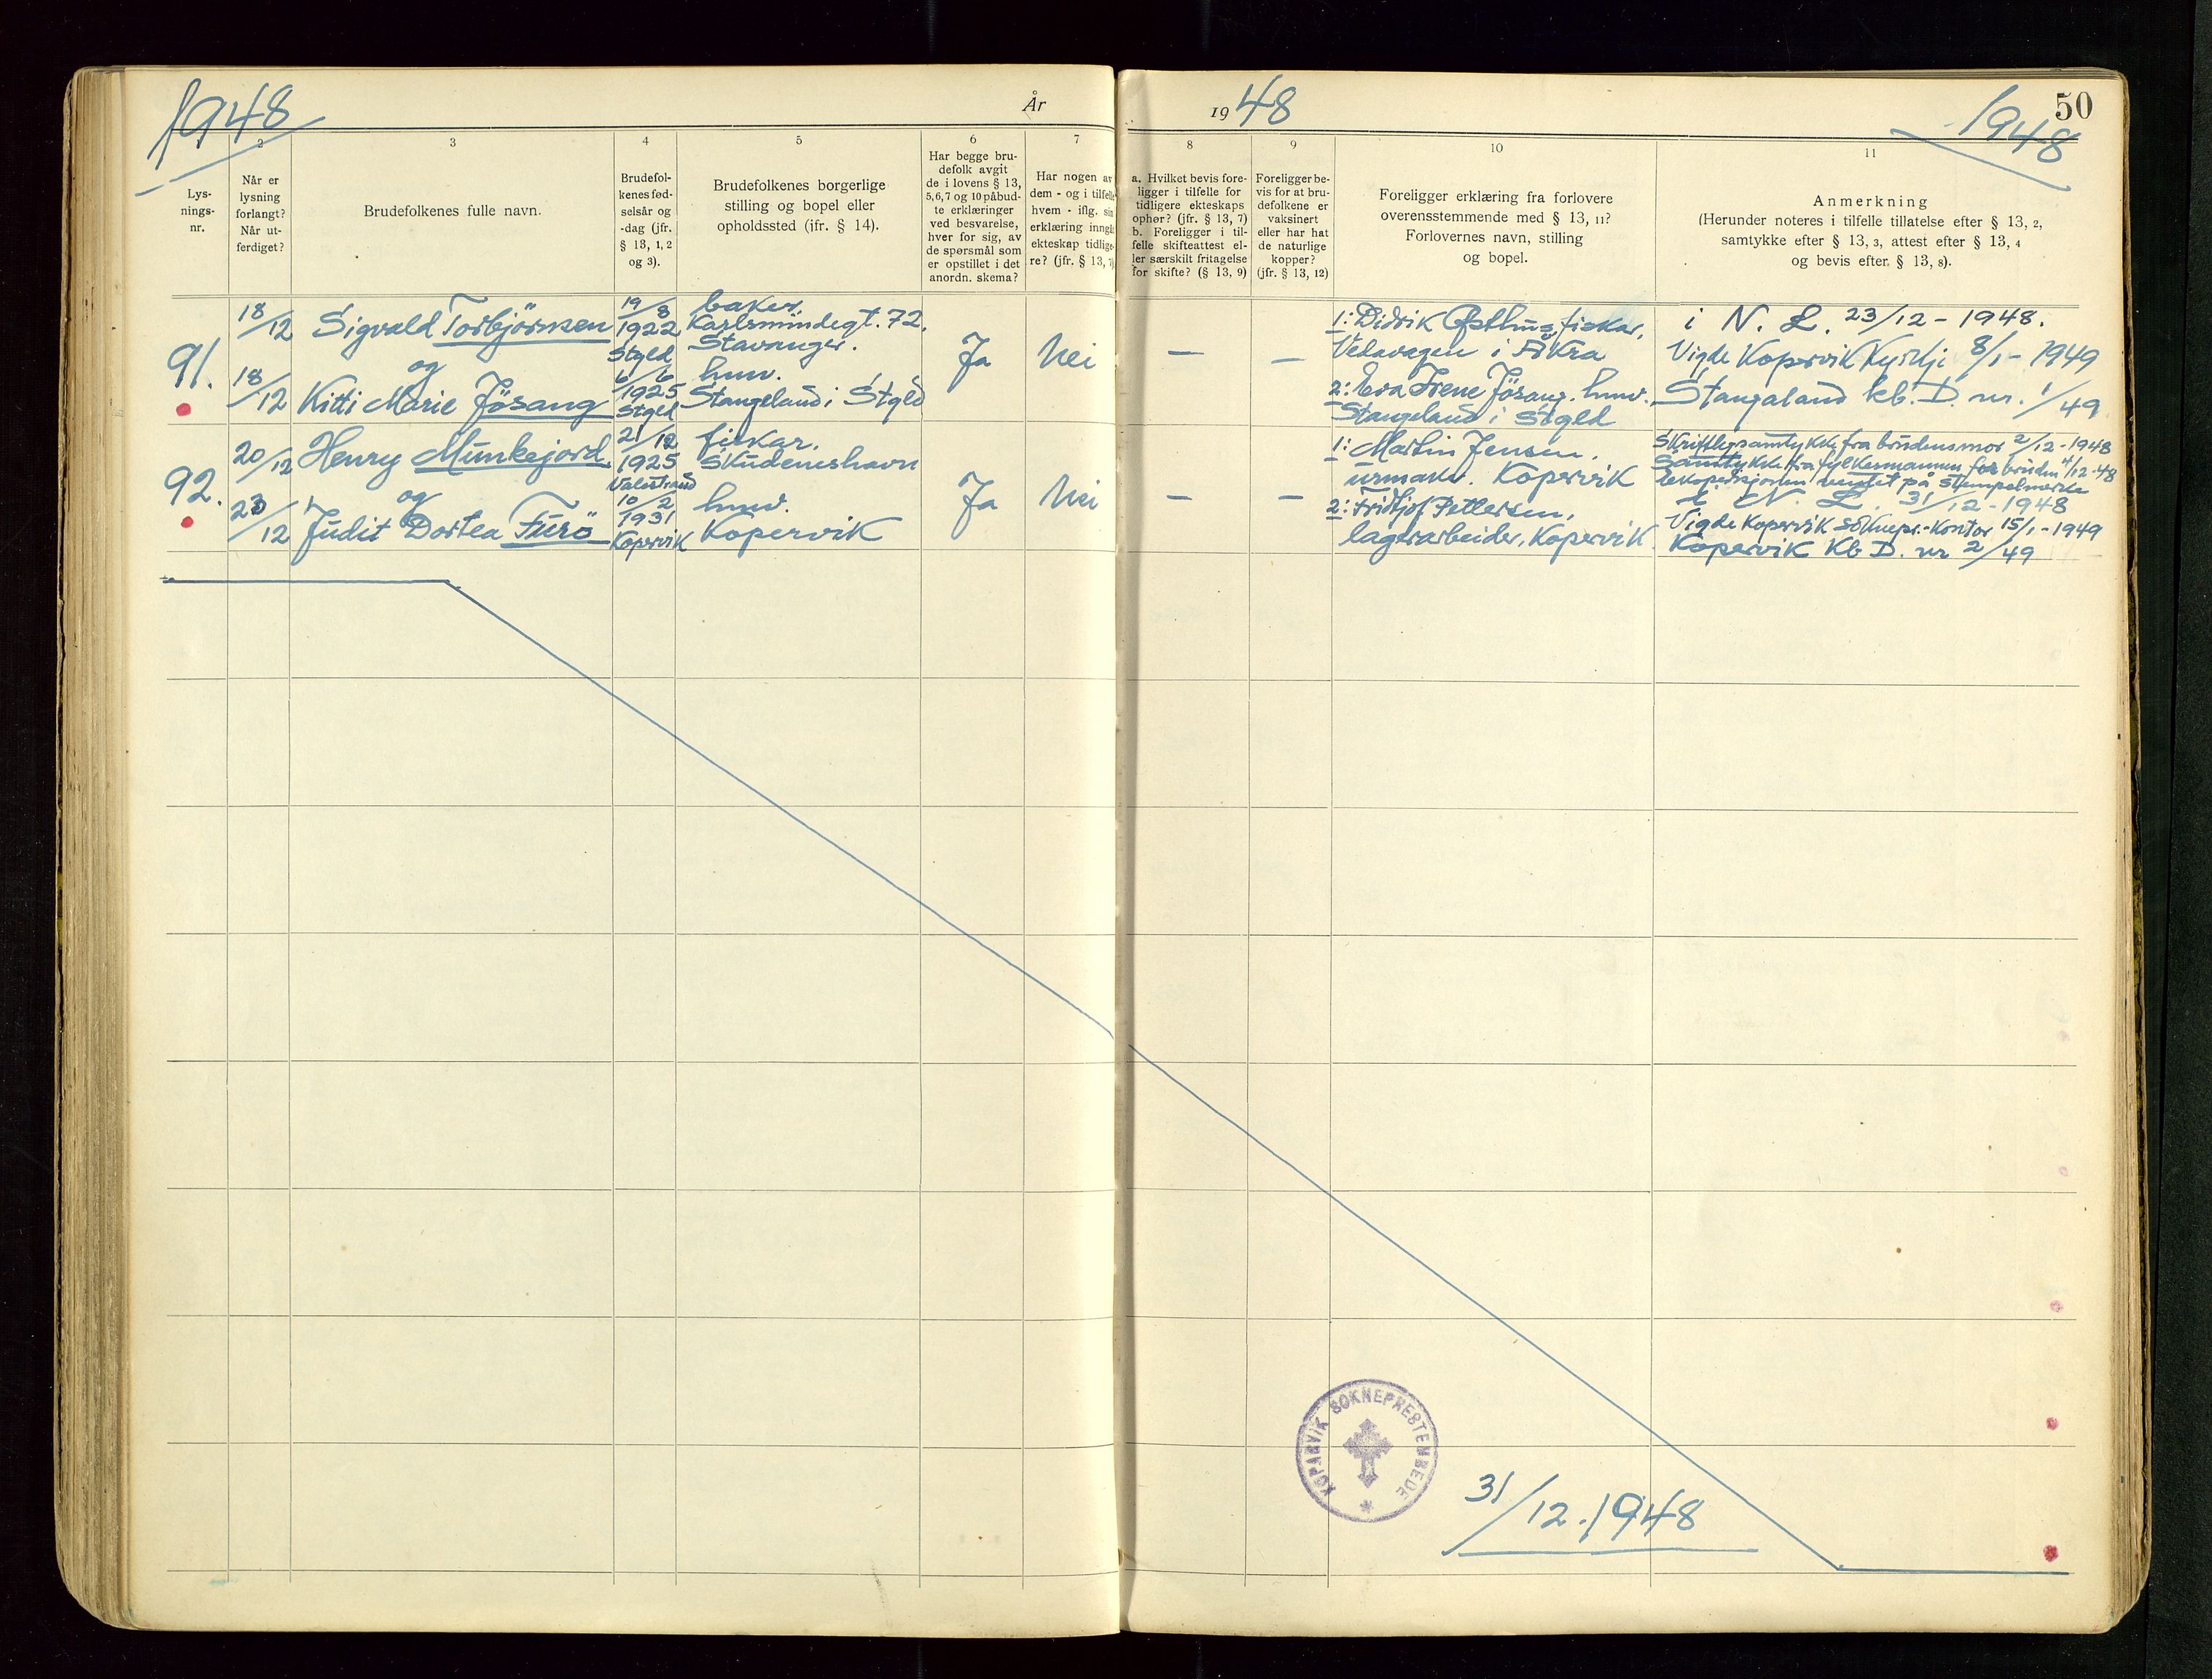 1948
År
1948
1948
50
2
3
4
5
6
7
8
9
10
11
Lys-
nings-
nr.
Når er
lysning
forlangt?
Når ut-
ferdiget?
Brudefolkenes fulle navn.
Brudefol-
kenes fød-
selsår og
-dag (jfr.
§ 13, 1, 2
og 3).
Brudefolkenes borgerlige
stilling og bopel eller
opholdssted (jfr. § 14).
Har begge bru-
defolk avgit
de i lovens § 13,
5, 6, 7 og 10 påbud-
te erklæringer
ved besvarelse,
hver for sig, av
de spørsmål som
er opstillet i det
anordn. skema?
Har nogen av
dem - og i tilfelle
hvem - iflg. sin
erklæring inngå
ekteskap tidlige-
re? (jfr. § 13, 7)
a. Hvilket bevis fore-
ligger i tilfelle for
tidligere ekteskaps
ophør? (jfr. § 13, 7)
b. Foreligger i til-
felle skifteattest el-
ler særskilt fritagelse
for skifte? (§ 13, 9)
Foreligger be-
vis for at bru-
defolkene er
vaksinert
eller har hat
de naturlige
kopper?
(jfr. § 13, 12)
Foreligger erklæring fra forlovere
overensstemmende med § 13, 11?
Forlovernes navn, stilling
og bopel.
Anmerkning
(Herunder noteres i tilfelle tillatelse efter § 13, 2,
samtykke efter § 13, 3, attest efter § 13, 4
og bevis efter § 13, 8).
91.
18/12
18/12
Sigvald Torbjörnsen
og
Kitti Marie Jösang
19/8
1922
Stgld
6/6
1925
Stgld
baker
Karlsmindegt. 72.
Stavanger.
hmv.
Stangeland i Stgld
Ja
Nei
—
—
1: Didrik Østhus, fiskar,
Vedavagen i Åkra
2: Eva Irene Jösang. hmv.
Stangeland i Stgld
i N. L. 23/12 - 1948.
Vigde Kopervik Kyrkje 8/1 - 1949
Stangaland kb. D. nr. 1/49
92.
20/12
23/12
Henry Munkejord
og
Judit Dortea Furö
21/12
1925
Valestrand
10/2
1931
Kopervik
fiskar.
Skudeneshavn
hmv.
Kopervik
Ja
Nei
—
—
1: Martin Jensen,
urmaker. Kopervik
2: Fridtjof Pettersen,
lagerarbeider, Kopervik
Skriftleg samtykke fra brudens mor 2/12 - 1948
Samtykke fra fylkesmannen for bruden 4/12 - 48
Ekspedisjonen ventet på stempelmerke
i N. L. 31/12 - 1948
Vigde Kopervik soknepr.-kontor 15/1 - 1949
Kopervik Kb D. nr 2/49
KOPARVIK SOKNEPRESTEMBEDE
31/12. 1948